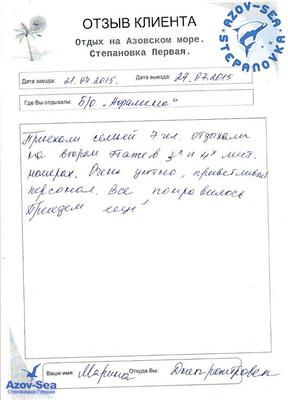 ОТЗЫВ КЛИЕНТА
Отдых на Азовском море.
Степановка Первая.
AZOV-SEA
STEPANOVKA
Дата заезда: 21.07.2015. Дата выезда: 27.07.2015
Где Вы отдыхали: Б/О "Аделина"
Приехали семьей 7 чел. отдыхали
на втором этаже в 3х и 4х мест.
номерах. Очень уютно, приветливый
персонал. Все понравилось
Приедем еще!
Ваше имя: Марина Откуда Вы: Днепропетровск
Azov-Sea
Степановка Первая